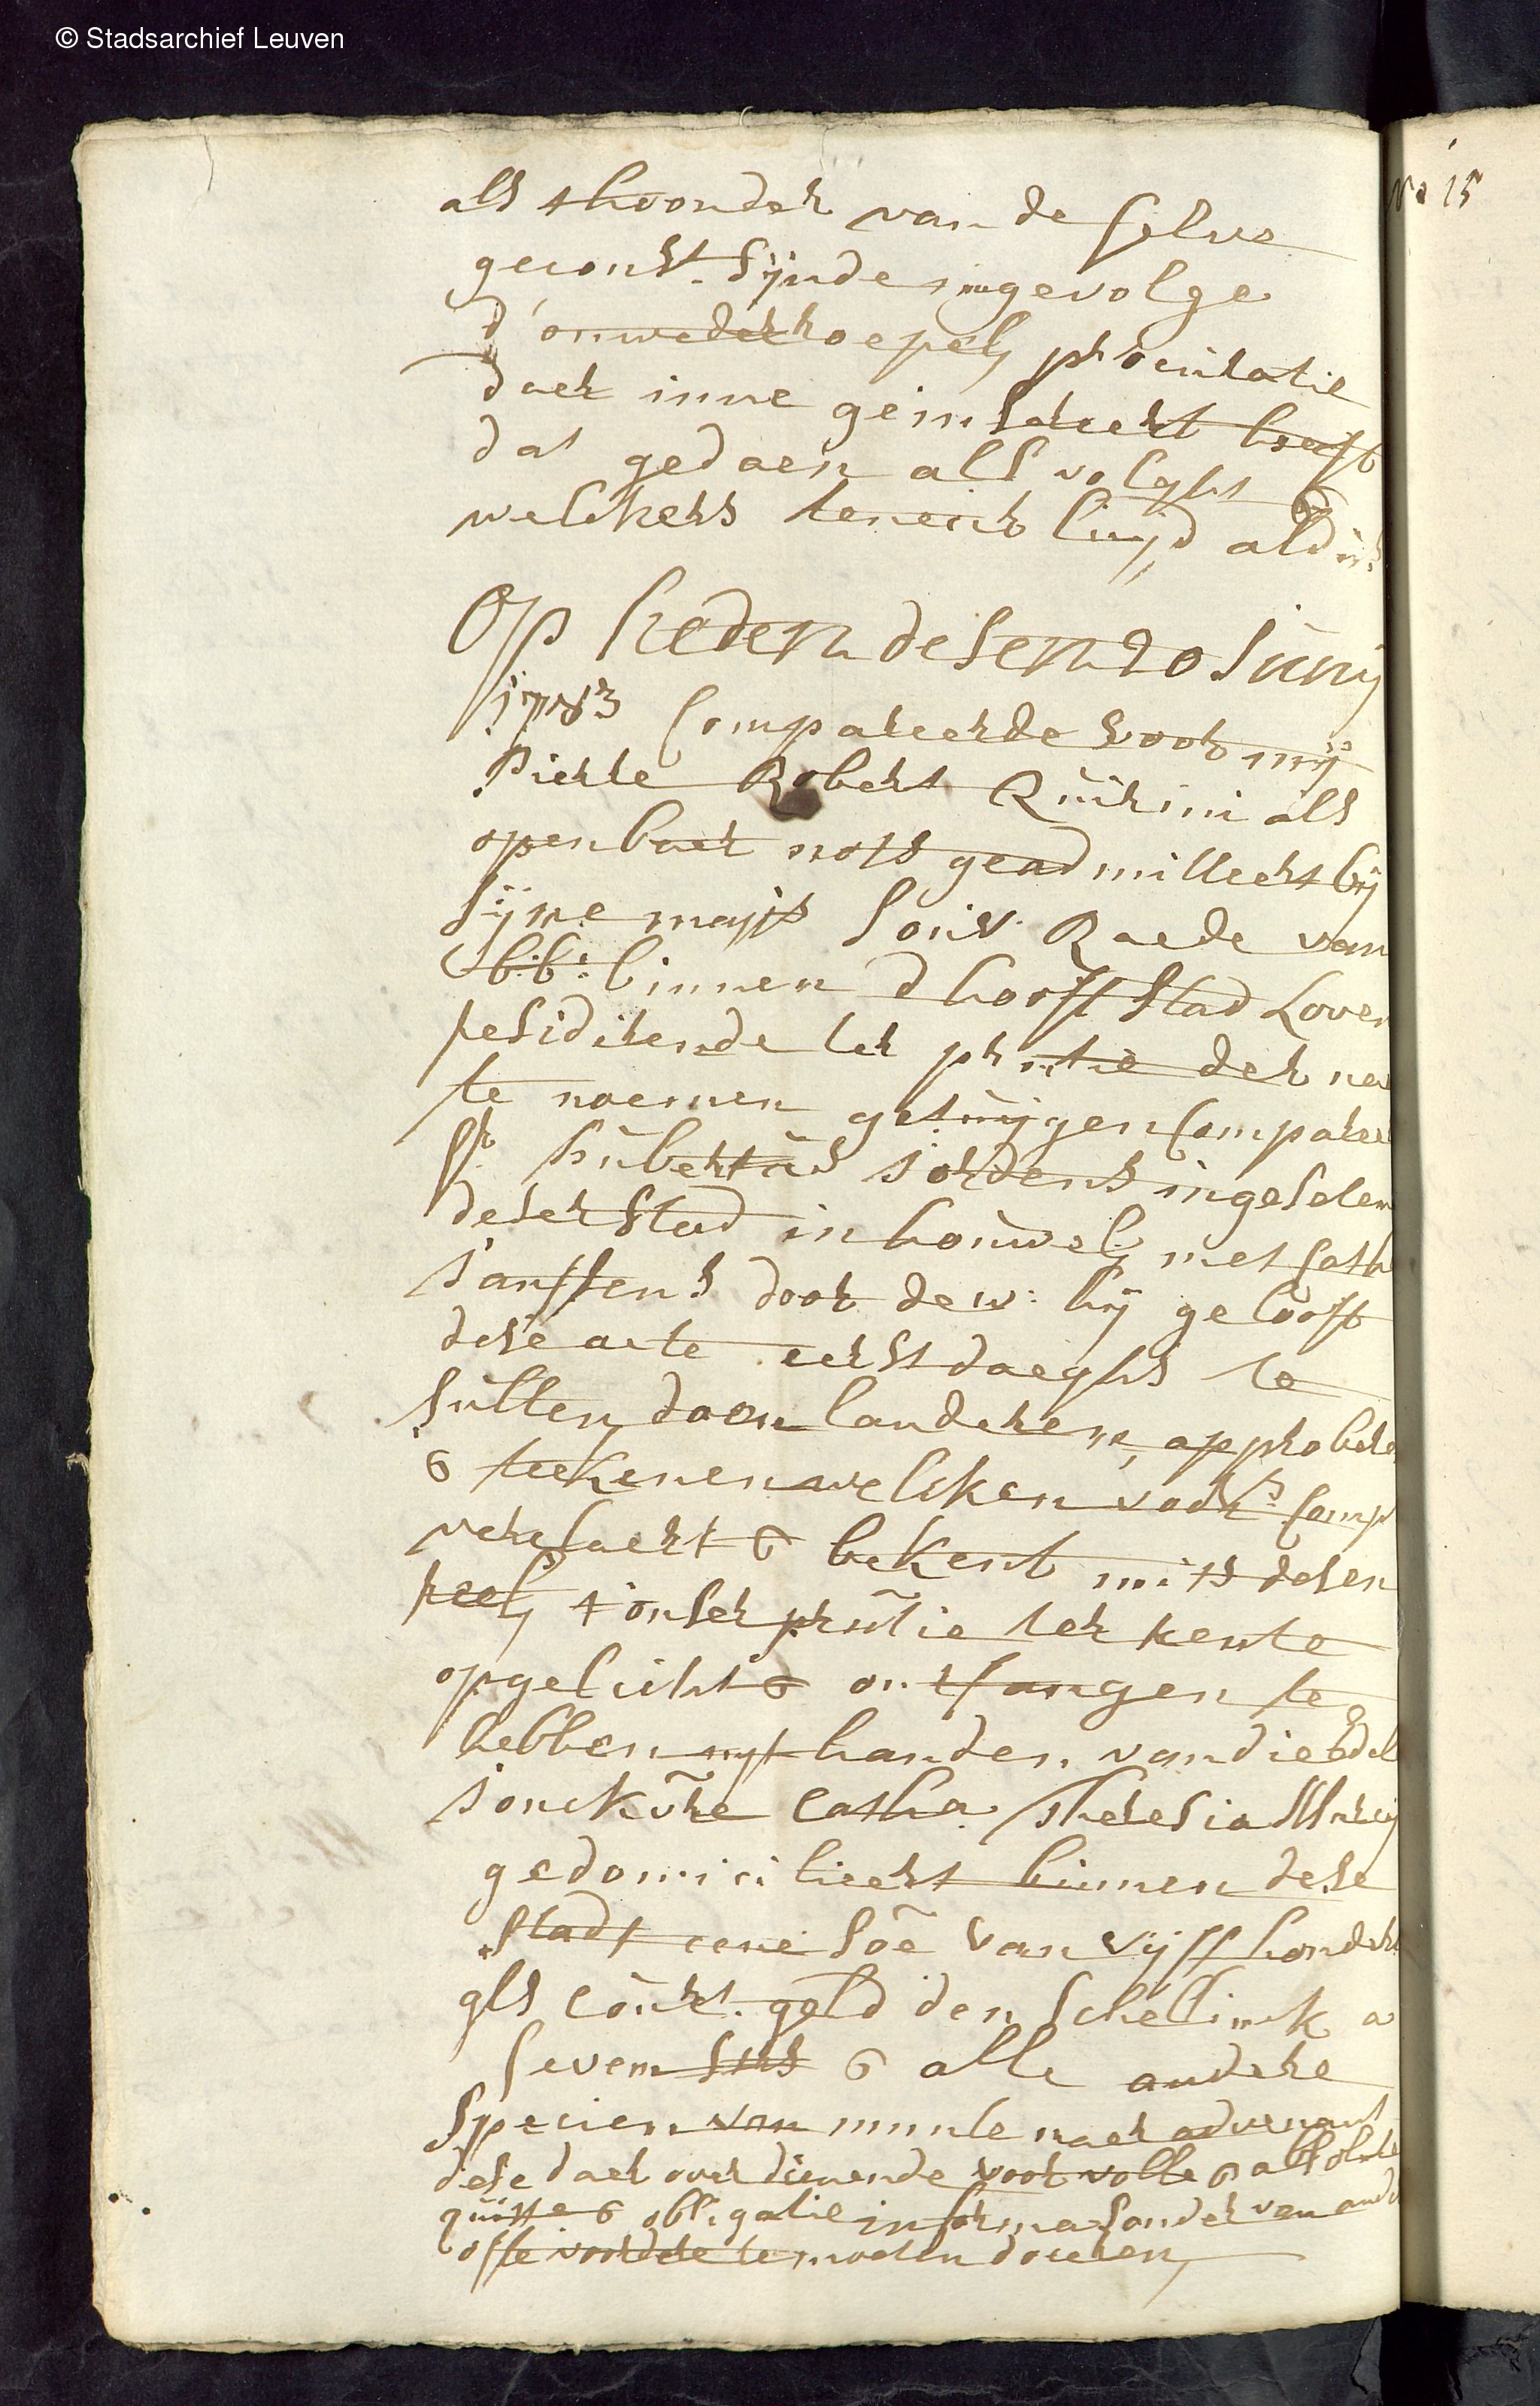 © Stadsarchief Leuven
No 15
als thoonder van de selve
geconst. sijnde ingevolge
d'onwederroepel; procuratie
daer inne geinsereert heeft
dat gedaen als volght &
welckers teneur luijd aldus
Op heden desen 20 Junij
1783 Compareerde voor mij
Pierre Robert Quirini als
openbaer nots geadmitteert bij
sijne majts souv. Raede van
b:b: binnen d'hooftstad Loven
residerende ter pntie der nae
te noemen getuijgen Comparee
Sr. hubertus Jordens ingeseten
deser stad in houwel; met Cath
Janssens door de w: hij gelooft
dese acte eerstdaeghs te
sullen doen lauderen, approbere
& teekenen welcken voors. Comp
verclaert & bekent mits desen
reel; t'onser pntie ter rente
opgelicht & ontfangen te
hebben uyt handen van die Edel
Jonckvre Catha. Theresia
gedomicilieert binnen dese
stadt eene soe van vijff hondert
gls court. geld den schellinck a
seven sts & alle andere
specien van munte naer advenant
dese daer over dienende voor volle & absolute
quitte & obligatie in forma sonder van andere
ofte voordere te moeten doceren